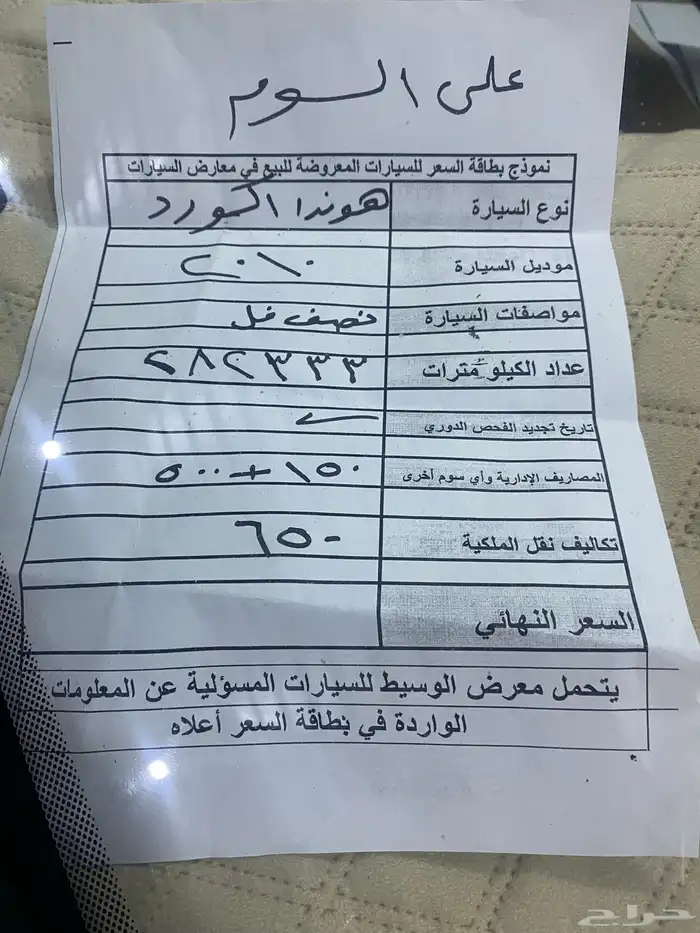 على السوم
نموذج بطاقة السعر للسيارات المعروضة للبيع في معارض السيارات
نوع السيارة هوندا اكورد
موديل السيارة ٢٠١٠
مواصفات السيارة نصف فل
عداد الكيلو مترات ٢٨٢٣٣٣
تاريخ تجديد الفحص الدوري
المصاريف الإدارية وأي سوم أخرى ١٥٠ + ٥٠٠
تكاليف نقل الملكية ٦٥٠
السعر النهائي
يتحمل معرض الوسيط للسيارات المسؤلية عن المعلومات
الواردة في بطاقة السعر أعلاه
حراج